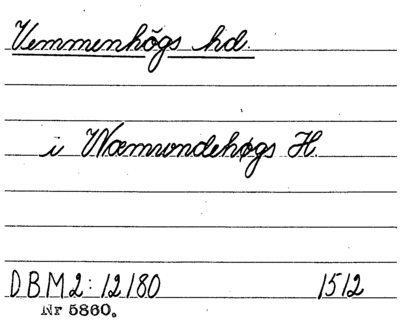 Vemmenhögs hd.
i Wæmundehøgs H.
DBM 2: 12180 1512
Nr 5860.